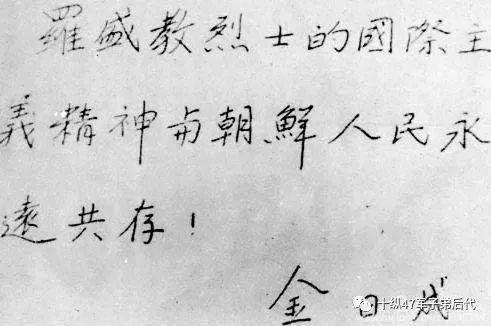 羅盛教烈士的國際主
義精神与朝鮮人民永
遠共存！
金日成
十纵47军子弟后代